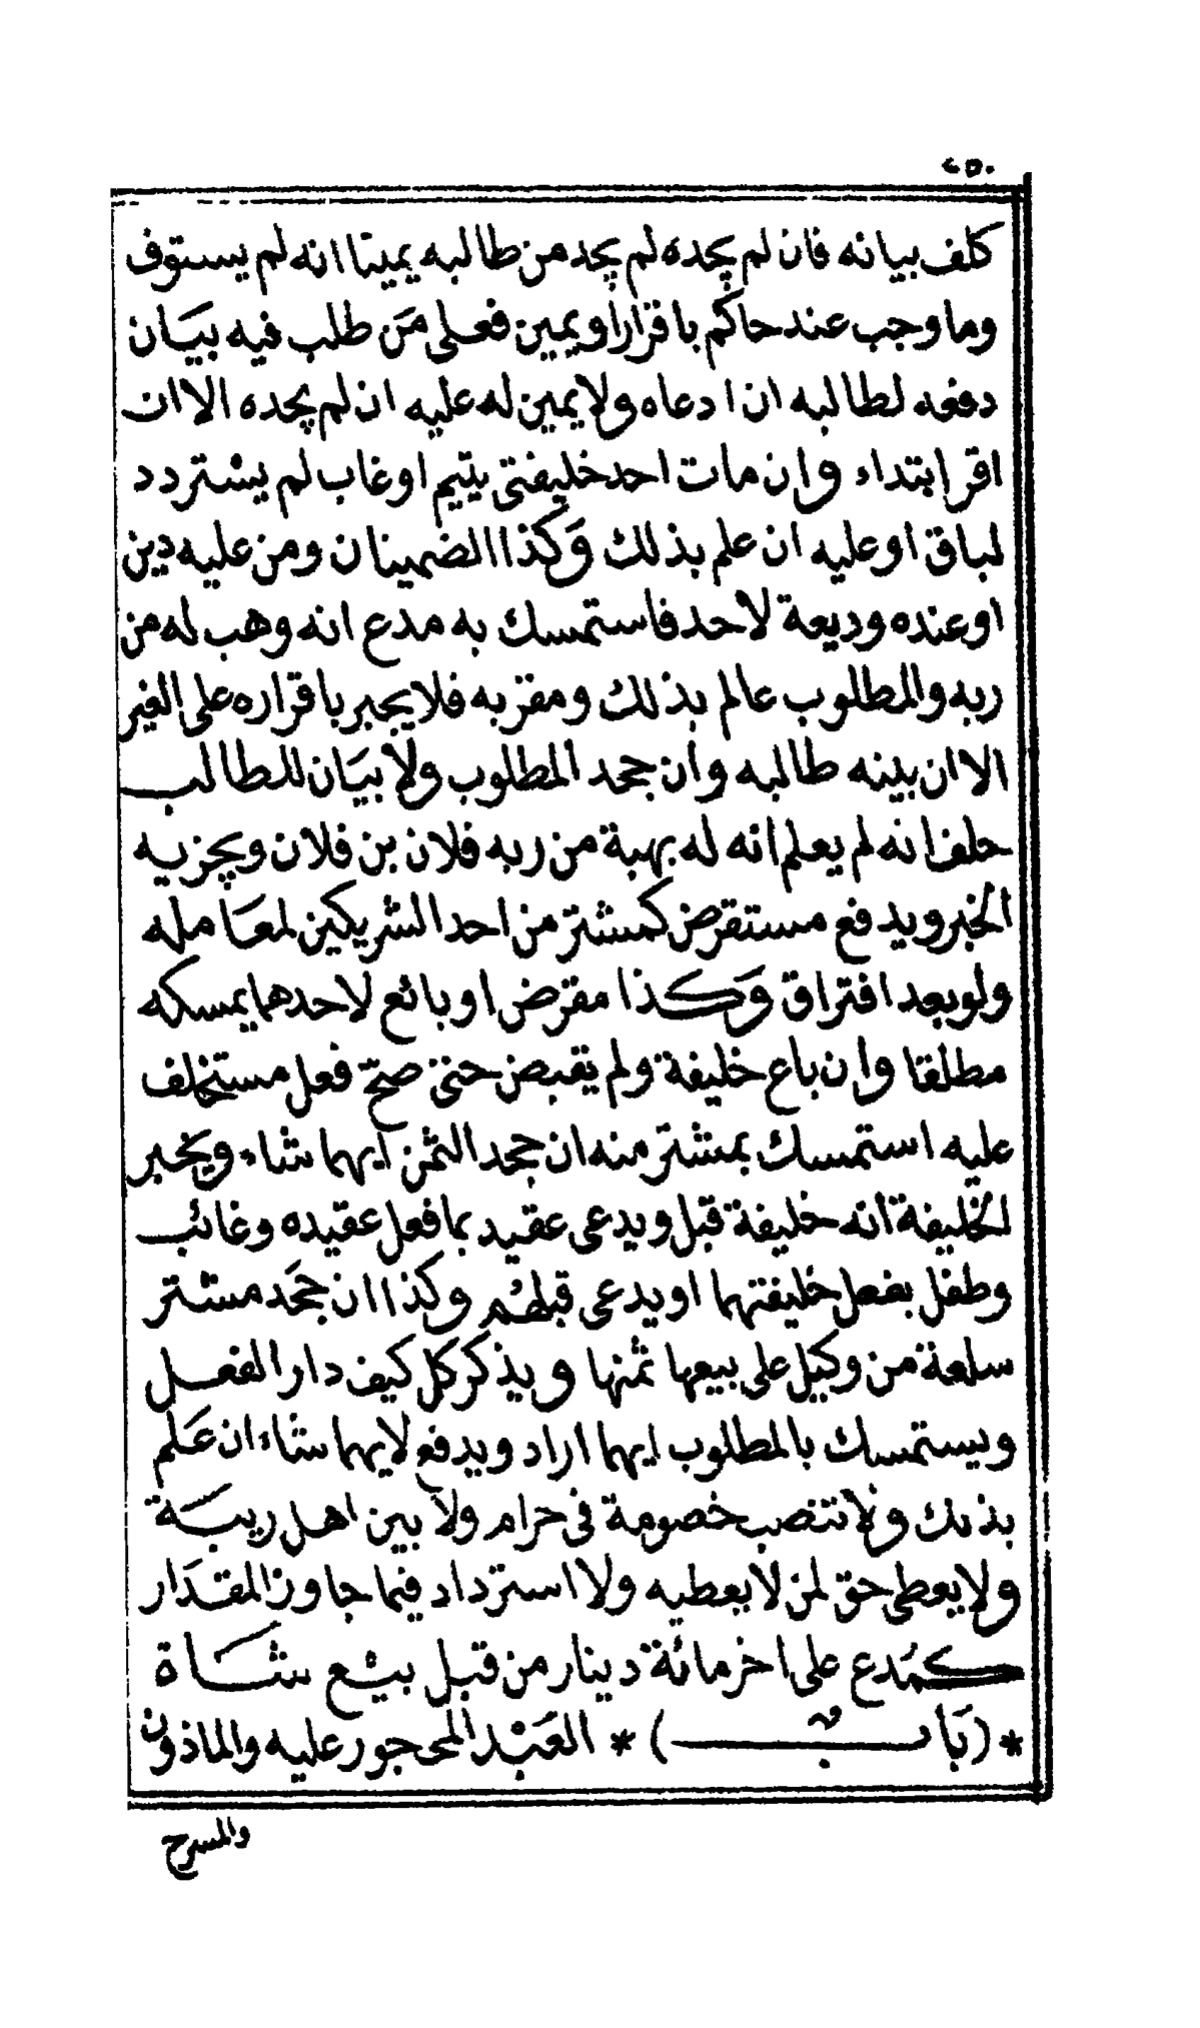 ٢٥٠
كلف بيانه فان لم يجده لم يجد من طالبه يمينا انه لم يستوف
وما وجب عند حاكم باقرار او يمين فعلى مَن طلب فيه بيَان
دفعه لطالبه ان ادعاه ولا يمين له عليه ان لم يجده الا ان
اقر ابتداء وان مات احد خليفتى يتيم او غاب لم يسْتردد
لباق او عليه ان علم بذلك وَكذا الضمينان ومن عليه دين
او عنده وديعة لاحد فاستمسك به مدع انه وهب له من
ربه والمطلوب عالم بذلك ومقر به فلا يجبر باقراره على الغير
الا ان بينه طالبه وان جحد المطلوب ولا بيَان للطالب
حلف انه لم يعلم انه له بهبة من ربه فلان بن فلان ويجزيه
الخبر ويدفع مستقرض كمشتر من احد الشريكين لمعَامله
ولو بعد افتراق وَكذا مقرض او بائع لاحدهما يمسكه
مطلقا وان باع خليفة ولم يقبض حتى صحّ فعل مستخلف
عليه استمسك بمشتر منه ان جحد الثمن ايهما شاء ويخبر
الخليفة انه خليفة قبل ويدعى عقيد بما فعل عقيده وغائب
وطفل بفعل خليفتهما او يدعى قبلهُم وكذا ان جحَد مشتر
سلعة من وكيل على بيعها ثمنها ويذكر كل كيف دار الفعل
ويستمسك بالمطلوب ايهما اراد ويدفع لايهما شاء ان عَلم
بذلك ولا تنصب خصومة فى حرام ولا بين اهل ريبَة
ولا يعطى حق لمن لا يعطيه ولا استرداد فيما جاوز المقدَار
كمُدع على اخر مائة دينار من قبل بيْع شَاة
* (بَابٌ) * العَبْد المحجور عليه والماذون
والمسرح